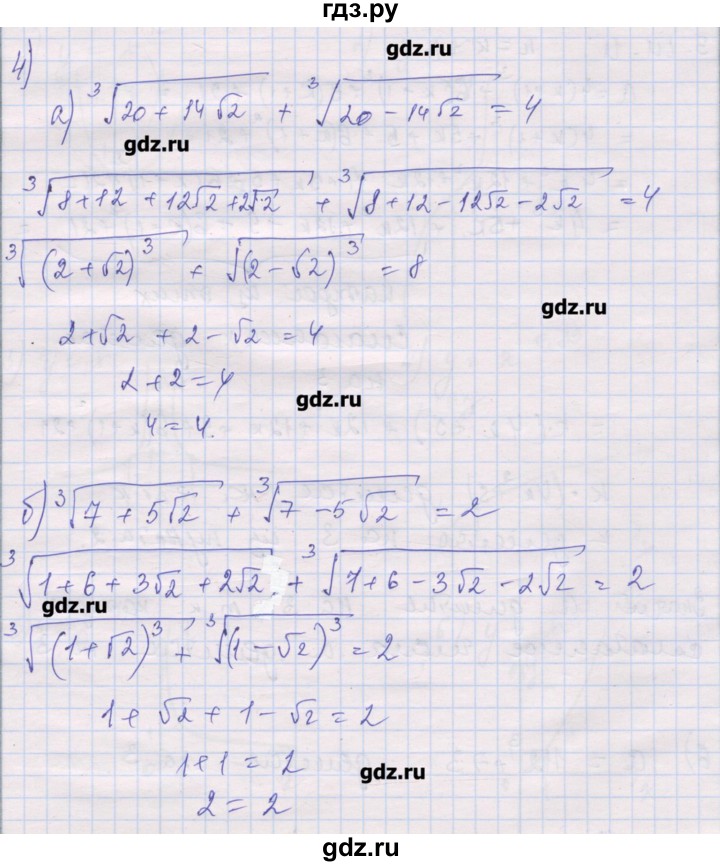 гдз.ру
gdz.ru
4)
а) ³√(20 + 14√2) + ³√(20 - 14√2) = 4
gdz.ru
³√(8+12 + 12√2 + 2√2) + ³√(8+12 - 12√2 - 2√2) = 4
³√((2+√2)³) + √((2-√2)³) = 8
gdz.ru
2+√2 + 2-√2 = 4
2+2=4
gdz.ru
4 = 4.
б) ³√(7 + 5√2) + ³√(7 - 5√2) = 2
gdz.ru
³√(1+6 + 3√2 + 2√2) + ³√(7+6 - 3√2 - 2√2) = 2
gdz.ru
³√((1+√2)³) + ³√((1-√2)³) = 2
1+√2 + 1-√2 = 2
1+1 = 2
gdz.ru
2 = 2
gdz.ru